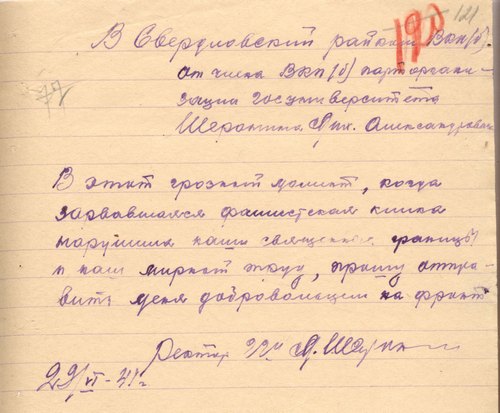 190 121
В Свердловский райком ВКП(б)
от члена ВКП(б) парторгани-
77
зации госуниверситета
Александровича
В этот грозный момент, когда
зарвавшаяся фашистская клика
нарушила наши священные границы
и наш мирный труд, прошу отпра-
вить меня добровольцем на фронт
Ректор
22/VI-41г